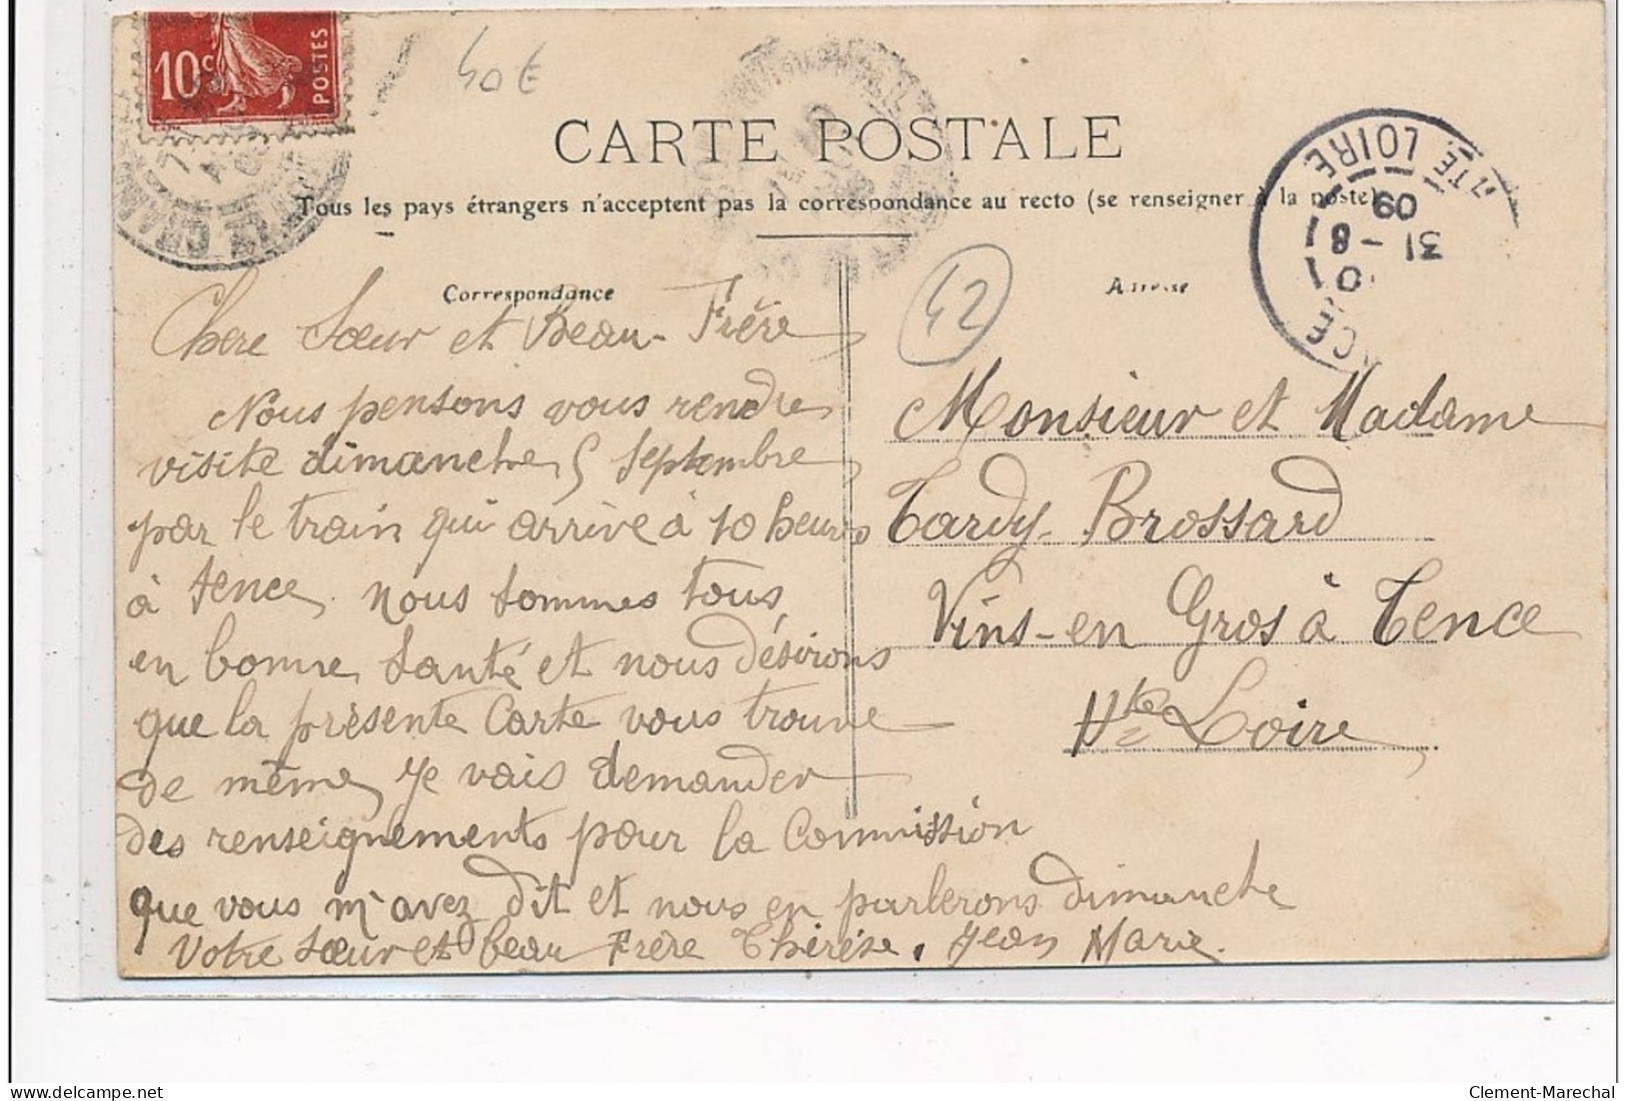 10c
POSTES
40€
CARTE POSTALE
Tous les pays étrangers n'acceptent pas la correspondance au recto (se renseigner à la poste)
Correspondance
Adresse
42
HTE LOIRE
31 - 8
09
Chere Sœur et Beau-Frère
Nous pensons vous rendre
visite dimanche 5 Septembre
par le train qui arrive à 10 heures
à tence. nous sommes tous
en bonne santé et nous désirons
que la présente Carte vous trouve
de même, Je vais demander
des renseignements pour la Commission
que vous m'avez dit et nous en parlerons dimanche
Votre sœur et beau Frère Thérèse. Jean Marie.
Monsieur et Madame
Tardy-Brossard
Vins-en Gros à Tence
Hte Loire
Clement-Marechal